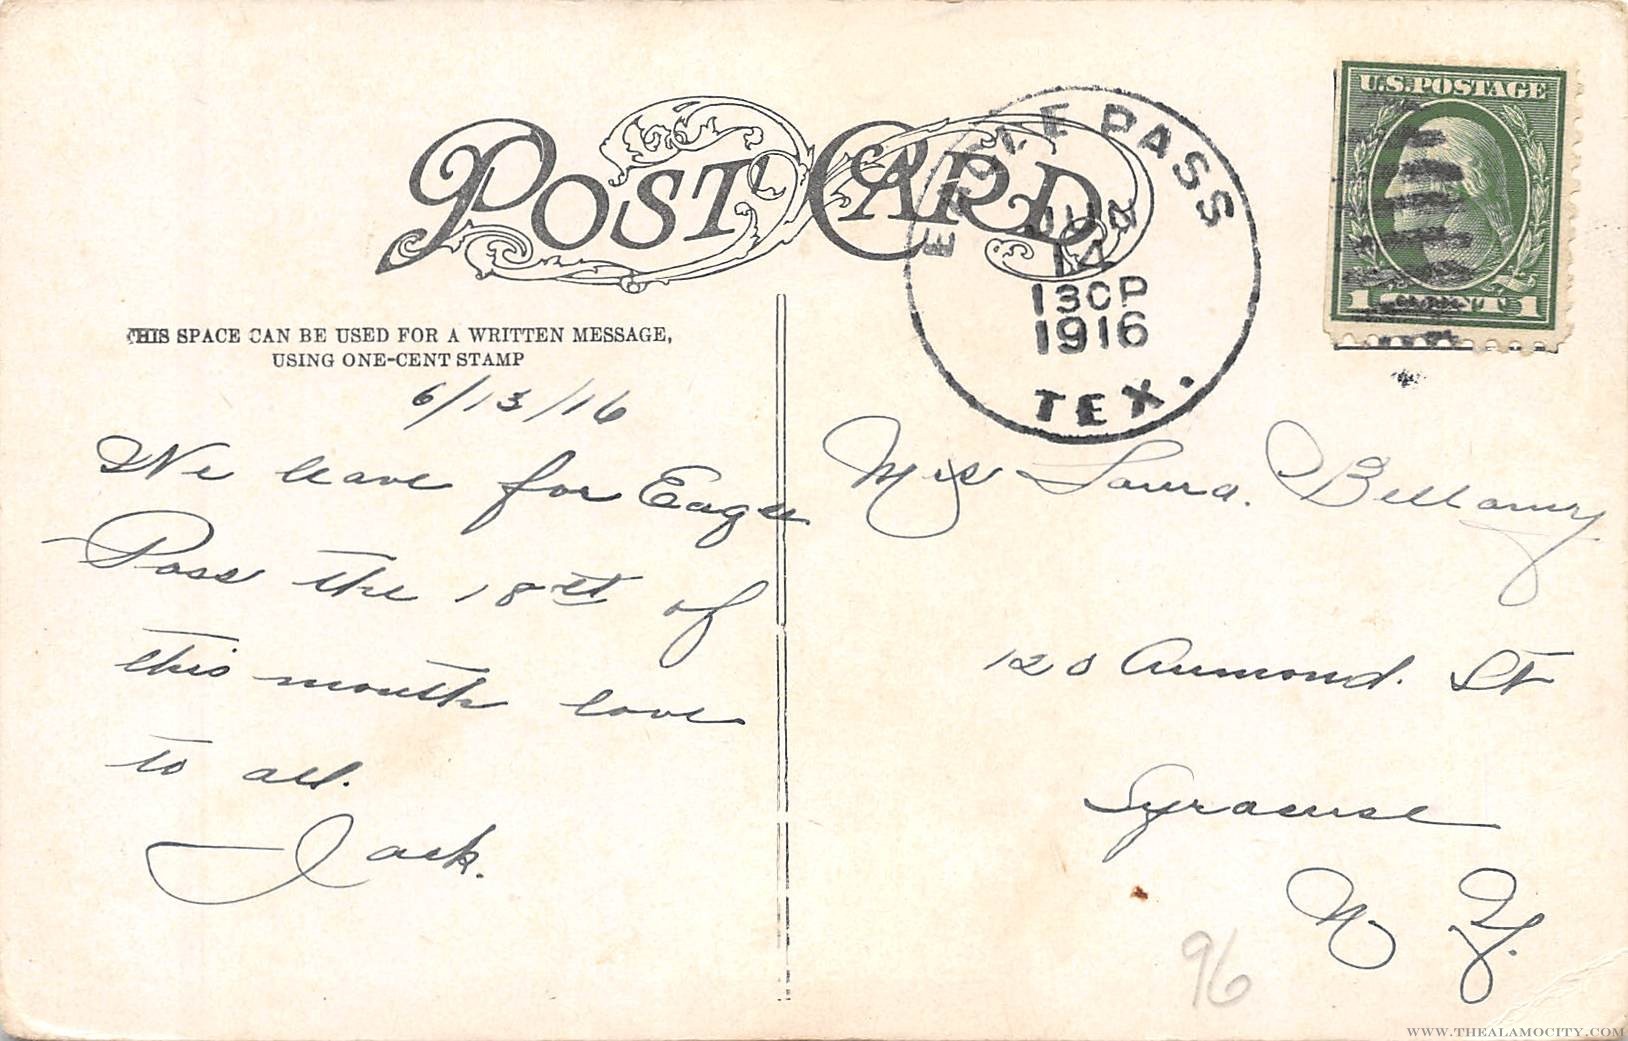 POST CARD
THIS SPACE CAN BE USED FOR A WRITTEN MESSAGE,
USING ONE-CENT STAMP
6/13/16
We leave for Eagle
Pass the 18st of
this month love
to all.
Jack.
EAGLE PASS
14
130P
1916
TEX.
U.S. POSTAGE
1 1
Mrs Laura. Bellamy
120 St
Syracuse
N Y.
96
WWW.THEALAMOCITY.COM